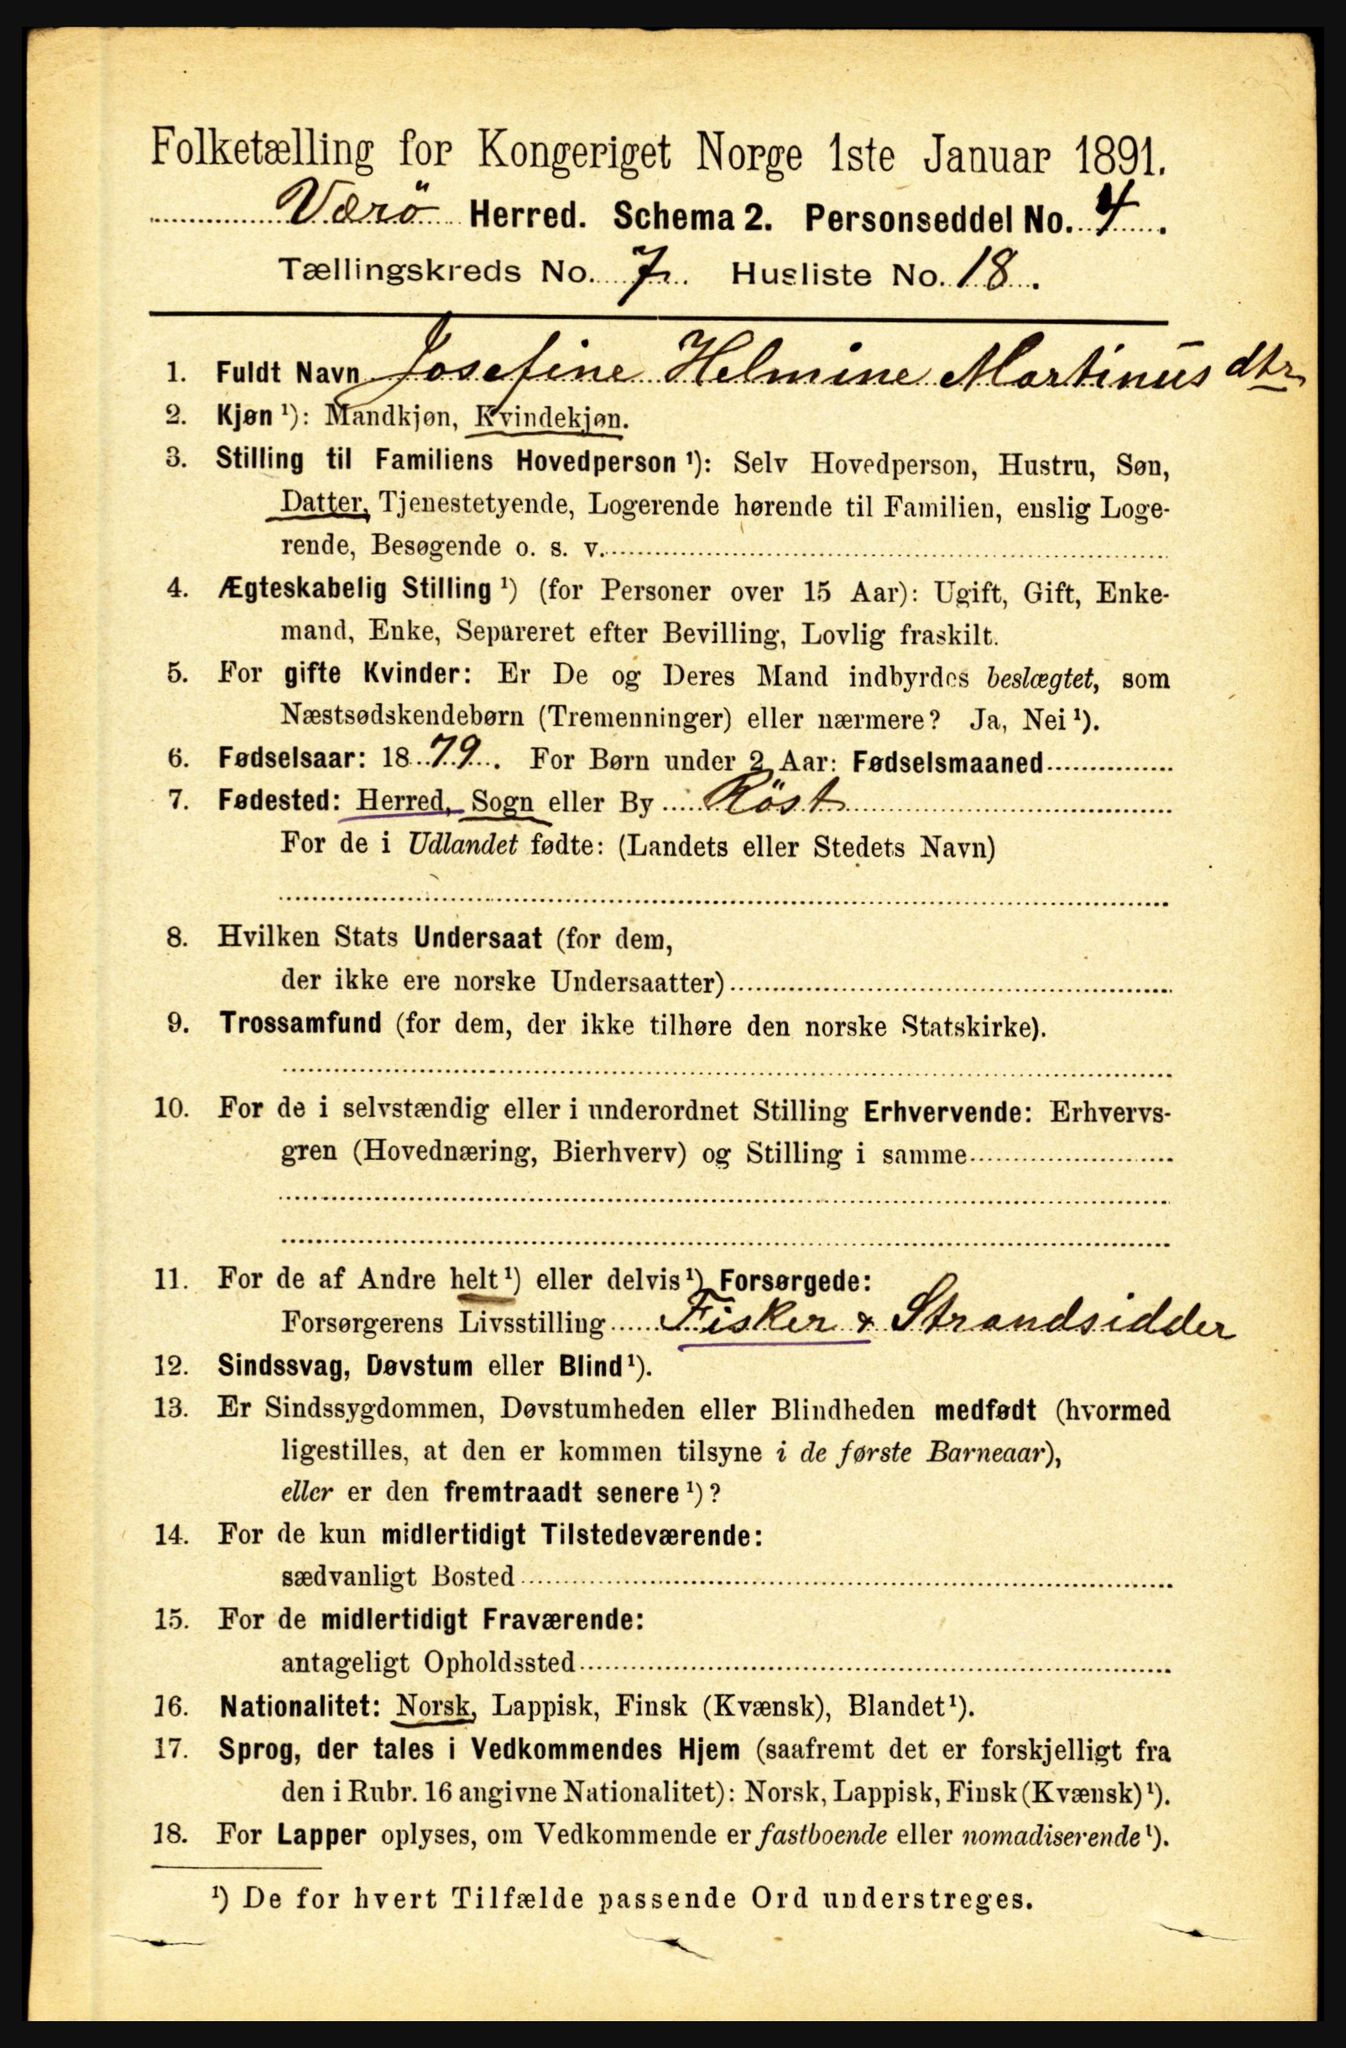 Folketælling for Kongeriget Norge 1ste Januar 1891.
Værö Herred. Schema 2. Personseddel No. 4.
Tællingskreds No. 7. Husliste No. 18.
1. Fuldt Navn Josefine Helmine Martinusdtr
2. Kjøn ¹): Mandkjøn, Kvindekjøn.
3. Stilling til Familiens Hovedperson ¹): Selv Hovedperson, Hustru, Søn,
Datter, Tjenestetyende, Logerende hørende til Familien, enslig Loge-
rende, Besøgende o. s. v.
4. Ægteskabelig Stilling ¹) (for Personer over 15 Aar): Ugift, Gift, Enke-
mand, Enke, Separeret efter Bevilling, Lovlig fraskilt.
5. For gifte Kvinder: Er De og Deres Mand indbyrdes beslægtet, som
Næstsødskendebørn (Tremenninger) eller nærmere? Ja, Nei ¹).
6. Fødselsaar: 1879. For Børn under 2 Aar: Fødselsmaaned
7. Fødested: Herred, Sogn eller By Röst
For de i Udlandet fødte: (Landets eller Stedets Navn)
8. Hvilken Stats Undersaat (for dem,
der ikke ere norske Undersaatter)
9. Trossamfund (for dem, der ikke tilhøre den norske Statskirke).
10. For de i selvstændig eller i underordnet Stilling Erhvervende: Erhvervs-
gren (Hovednæring, Bierhverv) og Stilling i samme
11. For de af Andre helt ¹) eller delvis ¹) Forsørgede:
Forsørgerens Livsstilling Fisker & Strandsidder
12. Sindssvag, Døvstum eller Blind ¹).
13. Er Sindssygdommen, Døvstumheden eller Blindheden medfødt (hvormed
ligestilles, at den er kommen tilsyne i de første Barneaar),
eller er den fremtraadt senere ¹)?
14. For de kun midlertidigt Tilstedeværende:
sædvanligt Bosted
15. For de midlertidigt Fraværende:
antageligt Opholdssted
16. Nationalitet: Norsk, Lappisk, Finsk (Kvænsk), Blandet ¹).
17. Sprog, der tales i Vedkommendes Hjem (saafremt det er forskjelligt fra
den i Rubr. 16 angivne Nationalitet): Norsk, Lappisk, Finsk (Kvænsk) ¹).
18. For Lapper oplyses, om Vedkommende er fastboende eller nomadiserende ¹).
¹) De for hvert Tilfælde passende Ord understreges.